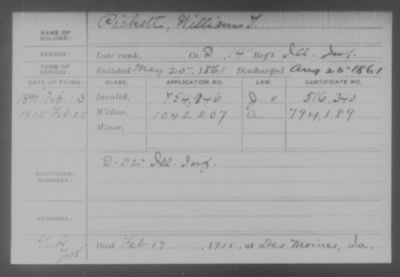 Pickett, William T.
NAME OF SOLDIER:
SERVICE: Late rank, Co. D, 14 Reg't Ill. Inf.
TERM OF SERVICE Enlisted May 25, 1861, Discharged Aug 25 1861
DATE OF FILING. CLASS. APPLICATION NO. LAW. CERTIFICATE NO.
Feb 13 Invalid, 754,946 516,340
1915 Feb 25 Widow, 1042207 a 794,189
Minor,
ADDITIONAL SERVICES: Ill. Inf.
REMARKS:
Died Feb 17, 1915, at Des Moines, Ia.